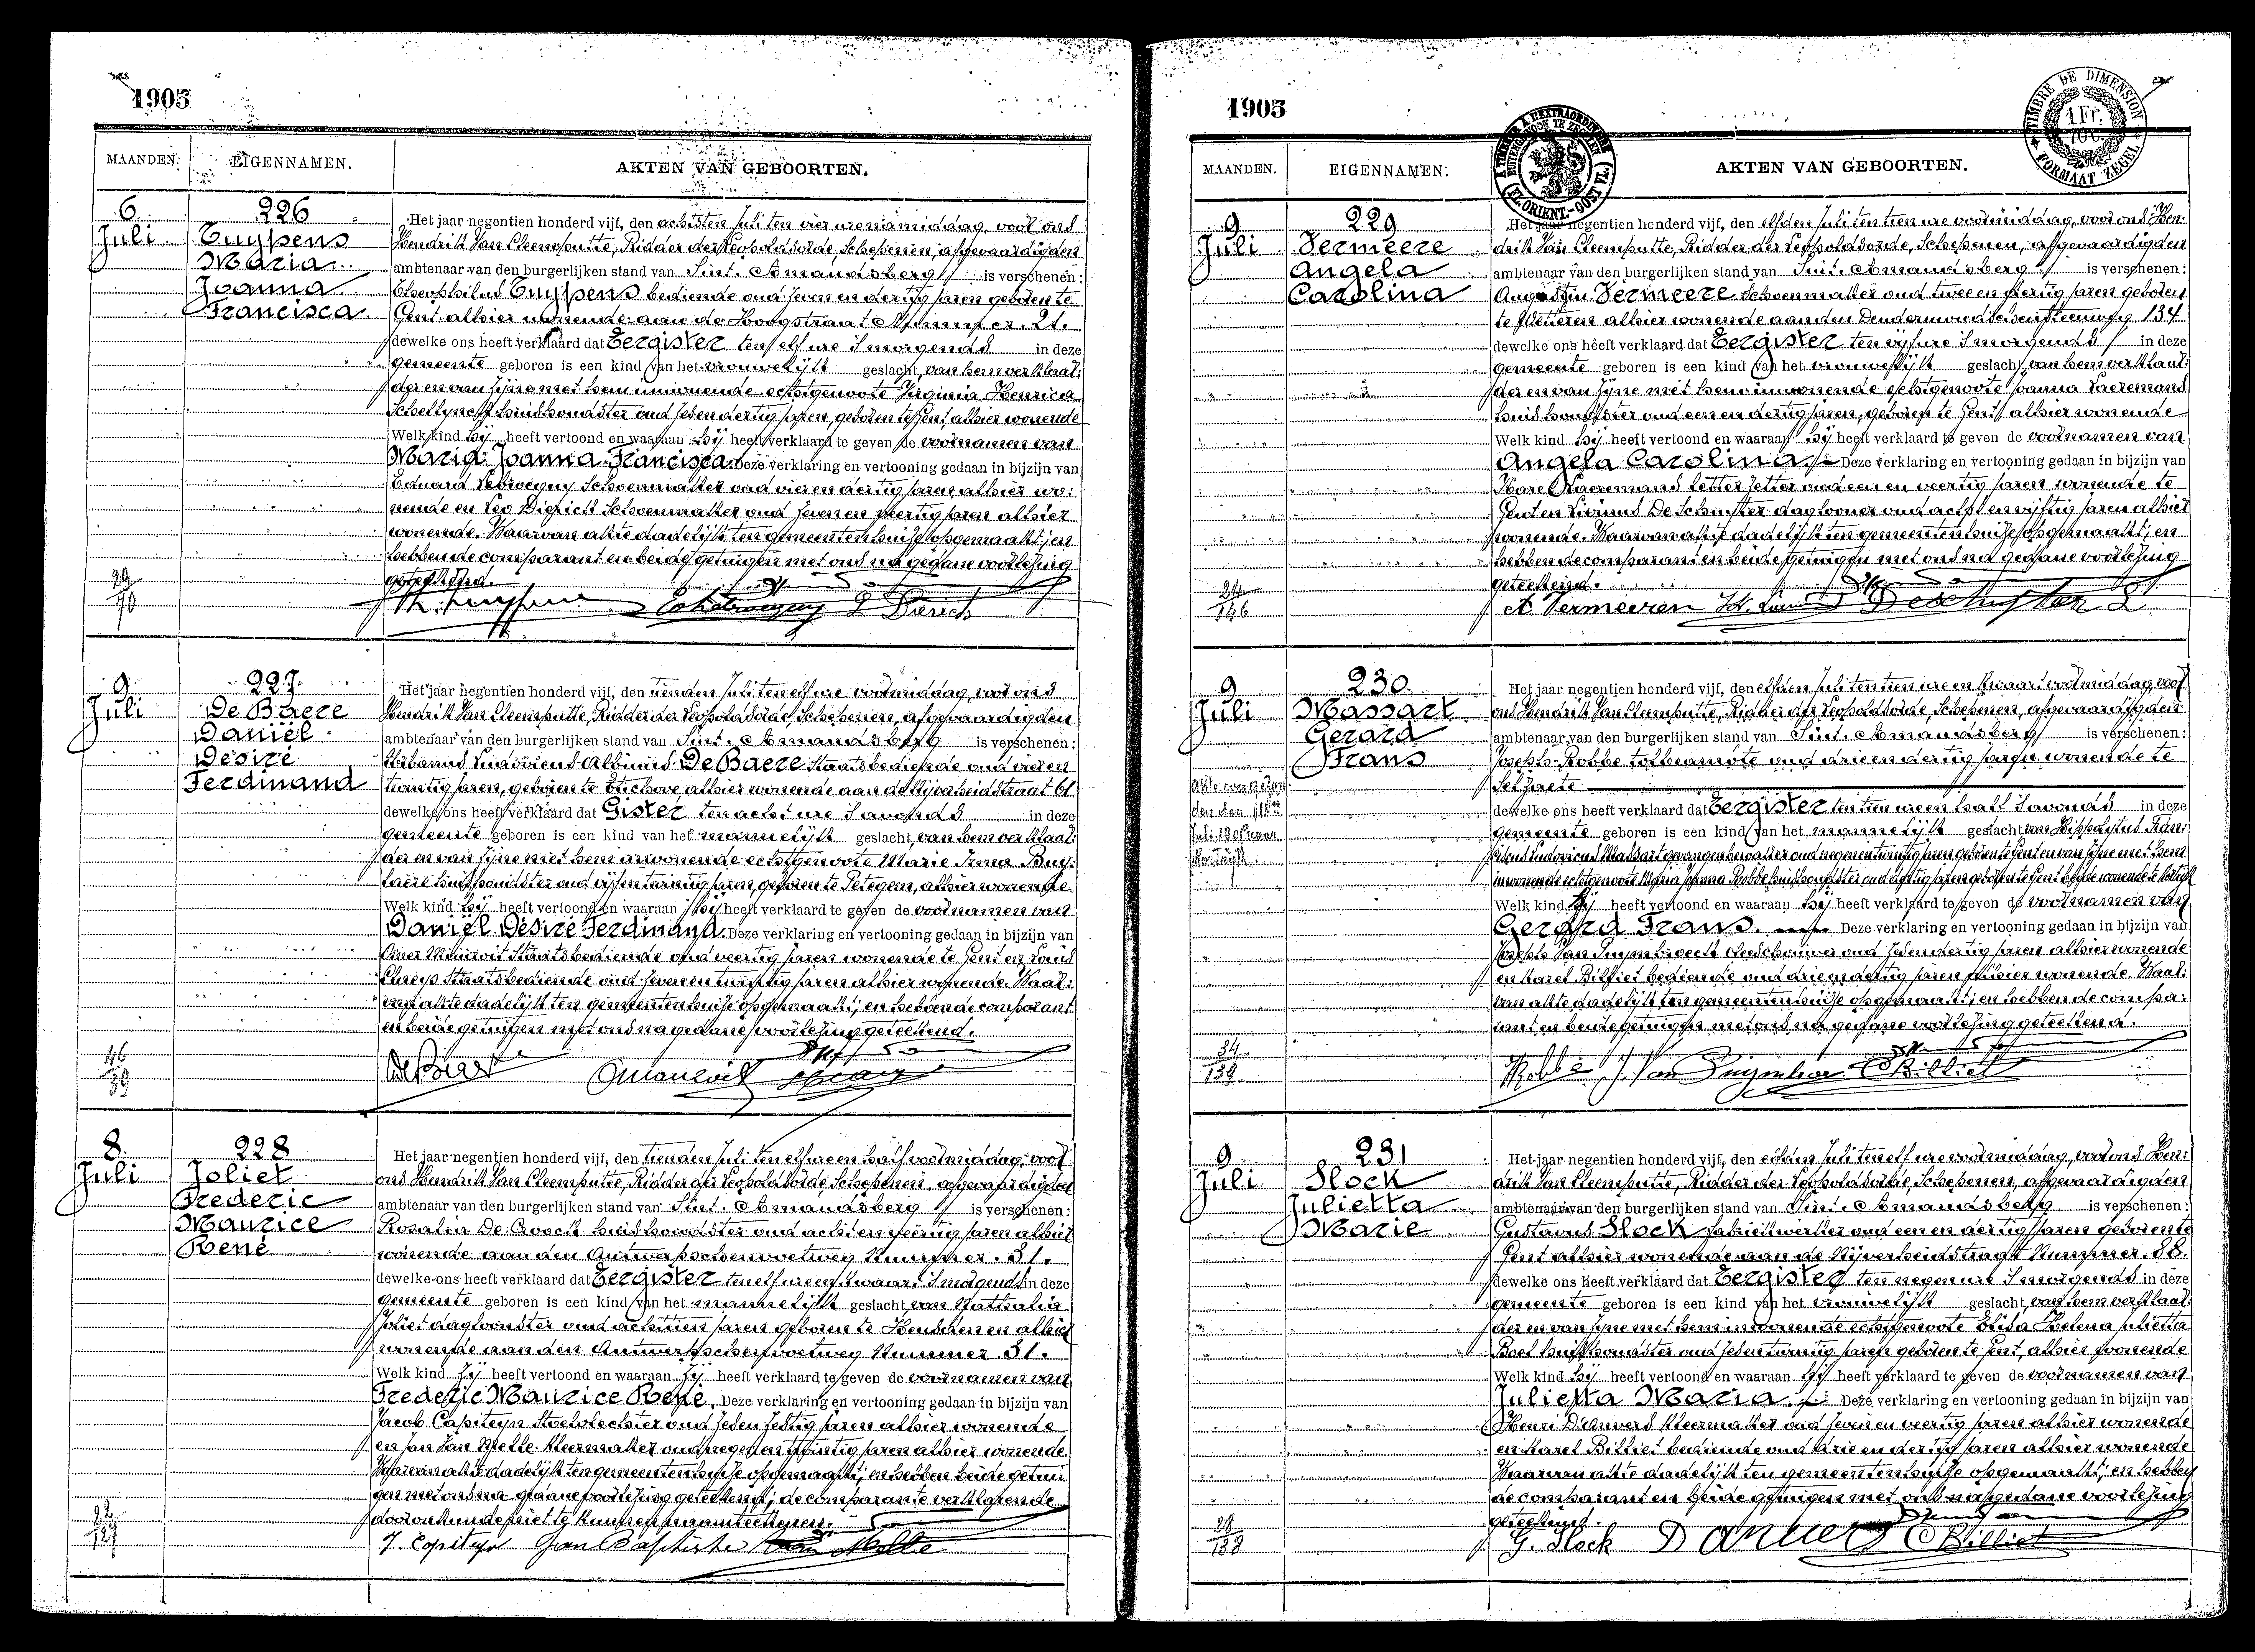 1905
MAANDEN. EIGENNAMEN. AKTEN VAN GEBOORTEN.
6 Juli
226
Tuypens
Maria
Joanna
Francisca
Het jaar negentien honderd vijf, den achtsten Juli ten vier ure namiddag, voor ons
Hendrik Van Cleemputte, Ridder der Leopoldsorde, Schepenen, afgevaardigden
ambtenaar van den burgerlijken stand van Sint. Amandsberg is verschenen:
Theophilus Tuypens bediende oud zeven en dertig jaren geboren te
Gent alhier wonende aan de Hoogstraat Nummer. 21.
dewelke ons heeft verklaard dat Eergister ten elf ure 's morgends in deze
gemeente geboren is een kind van het vrouwelijk geslacht, van hem verklaar:
der en van zijne met hem inwonende echtgenoote Virginia Henrica
huishoudster oud zes en dertig jaren, geboren te Gent alhier wonende
Welk kind hij heeft vertoond en waaraan hij heeft verklaard te geven de voornamen van
Maria Joanna Francisca. Deze verklaring en vertooning gedaan in bijzijn van
Eduard Schoenmaker oud vier en dertig jaren alhier wo:
nende en Leo Dierick Schoenmaker oud zeven en veertig jaren alhier
wonende. Waarvan akte dadelijk ten gemeentenhuize opgemaakt; en
hebben de comparant en beide getuigen met ons na gedane voorlezing
geteekend.
9 Juli
227.
De Baere
Daniël
Désiré
Ferdinand
Het jaar negentien honderd vijf, den tienden Juli ten elf ure voormiddag, voor ons
Hendrik Van Cleemputte, Ridder der Leopoldsorde, Schepenen, afgevaardigden
ambtenaar van den burgerlijken stand van Sint. Amandsberg is verschenen:
Urbanus Ludovicus Albinus De Baere Staatsbediende oud vier en
twintig jaren, geboren te Etichove alhier wonende aan de Nijverheidstraat 61
dewelke ons heeft verklaard dat Gister ten acht ure 's avonds in deze
gemeente geboren is een kind van het mannelijk geslacht, van hem verklaar:
der en van zijne met hem inwonende echtgenoote Marie Irma Buy:
laere huishoudster oud vijf en twintig jaren, geboren te Petegem, alhier wonende
Welk kind hij heeft vertoond en waaraan hij heeft verklaard te geven de voornamen van
Daniël Désiré Ferdinand. Deze verklaring en vertooning gedaan in bijzijn van
Omer Staatsbediende oud veertig jaren wonende te Gent en Louis
Staatsbediende oud zeven en twintig jaren alhier wonende. Waar:
van akte dadelijk ten gemeentenhuize opgemaakt; en hebben de comparant
en beide getuigen met ons na gedane voorlezing geteekend.
8. Juli
228
Joliet
Frederic
Maurice
René
Het jaar negentien honderd vijf, den tienden Juli ten elf ure en half voormiddag, voor
ons Hendrik Van Cleemputte, Ridder der Leopoldsorde, Schepenen, afgevaardigden
ambtenaar van den burgerlijken stand van Sint. Amandsberg is verschenen:
Rosalia De Croock huishoudster oud acht en veertig jaren alhier
wonende aan den Antwerpschensteenweg Nummer. 31.
dewelke ons heeft verklaard dat Eergister ten elf ure en kwart 's morgends in deze
gemeente geboren is een kind van het mannelijk geslacht, van Nathalia
Joliet dagloonster oud achttien jaren geboren te Heusden en alhier
wonende aan den Antwerpschensteenweg Nummer. 31.
Welk kind zij heeft vertoond en waaraan zij heeft verklaard te geven de voornamen van
Frederic Maurice René. Deze verklaring en vertooning gedaan in bijzijn van
Jacob Capiteyn Stoelvlechter oud zes en zestig jaren alhier wonende
en Jan Van Melle Kleermaker oud negen en twintig jaren alhier wonende.
Waarvan akte dadelijk ten gemeentenhuize opgemaakt; en hebben beide getui
gen met ons na gedane voorlezing geteekend; de comparante verklarende
door onkunde niet te kunnen naamteekenen.
J. Capiteyn Jan Baptiste Van Melle
1905
A TIMBRER A L'EXTRAORDINAIRE
BUITENGEWOON TE ZEGELEN
FL. ORIENT. - OOST VL.
TIMBRE DE DIMENSION
1 Fr.
FORMAAT ZEGEL
MAANDEN. EIGENNAMEN. AKTEN VAN GEBOORTEN.
9 Juli
229
Vermeere
Angela
Carolina
Het jaar negentien honderd vijf, den elfden Juli ten tien ure voormiddag, voor ons Hen:
drik Van Cleemputte, Ridder der Leopoldsorde, Schepenen, afgevaardigden
ambtenaar van den burgerlijken stand van Sint. Amandsberg is verschenen:
Augustin Vermeere Schoenmaker oud twee en dertig jaren geboren
te Wetteren alhier wonende aan den Dendermondschensteenweg 134
dewelke ons heeft verklaard dat Eergister ten vijf ure 's morgends in deze
gemeente geboren is een kind van het vrouwelijk geslacht, van hem verklaar:
der en van zijne met hem inwonende echtgenoote Joanna Laeremans
huishoudster oud een en dertig jaren, geboren te Gent alhier wonende
Welk kind hij heeft vertoond en waaraan hij heeft verklaard te geven de voornamen van
Angela Carolina. Deze verklaring en vertooning gedaan in bijzijn van
Karel Laeremans letterzetter oud een en veertig jaren wonende te
Gent en Livinus De Schuyter daglooner oud acht en vijftig jaren alhier
wonende. Waarvan akte dadelijk ten gemeentenhuize opgemaakt; en
hebben de comparant en beide getuigen met ons na gedane voorlezing
geteekend.
A. Vermeeren
9 Juli
230.
Massart
Gerard
Frans
Het jaar negentien honderd vijf, den elfden Juli ten tien ure en kwart voormiddag, voor
ons Hendrik Van Cleemputte, Ridder der Leopoldsorde, Schepenen, afgevaardigden
ambtenaar van den burgerlijken stand van Sint. Amandsberg is verschenen:
Joseph Robbe tolbeambte oud drie en dertig jaren wonende te
Selzaete
dewelke ons heeft verklaard dat Eergister ten tien ure en half 's avonds in deze
gemeente geboren is een kind van het mannelijk geslacht van Hippolytus Fran:
ciscus Ludovicus Massart gevangenbewaker oud negen en twintig jaren geboren te Gent en van zijne met hem
inwonende echtgenoote Maria Joanna Robbe huishoudster oud dertig jaren geboren te Gent beide wonende te Kortrijk
Welk kind hij heeft vertoond en waaraan hij heeft verklaard te geven de voornamen van
Gerard Frans. Deze verklaring en vertooning gedaan in bijzijn van
Joseph Van oud zes en dertig jaren alhier wonende
en Karel Billiet bediende oud drie en dertig jaren alhier wonende. Waar:
van akte dadelijk ten gemeentenhuize opgemaakt; en hebben de compa:
rant en beide getuigen met ons na gedane voorlezing geteekend.
Robbe Billiet
9 Juli
231
Slock
Julietta
Marie
Het jaar negentien honderd vijf, den elfden Juli ten elf ure voormiddag, voor ons Hen:
drik Van Cleemputte, Ridder der Leopoldsorde, Schepenen, afgevaardigden
ambtenaar van den burgerlijken stand van Sint. Amandsberg is verschenen:
Gustavus Slock fabriekwerker oud een en dertig jaren geboren te
Gent alhier wonende aan de Nijverheidstraat Nummer. 88.
dewelke ons heeft verklaard dat Eergister ten negen ure 's morgends in deze
gemeente geboren is een kind van het vrouwelijk geslacht, van hem verklaar:
der en van zijne met hem inwonende echtgenoote Elisa Helena Julietta
Boel huishoudster oud zes en twintig jaren geboren te Gent, alhier wonende
Welk kind hij heeft vertoond en waaraan hij heeft verklaard te geven de voornamen van
Julietta Maria. Deze verklaring en vertooning gedaan in bijzijn van
Henri D'anvers kleermaker oud zeven en veertig jaren alhier wonende
en Karel Billiet bediende oud drie en dertig jaren alhier wonende
Waarvan akte dadelijk ten gemeentenhuize opgemaakt; en hebben
de comparant en beide getuigen met ons na gedane voorlezing
geteekend.
G. Slock Danvers C Billiet